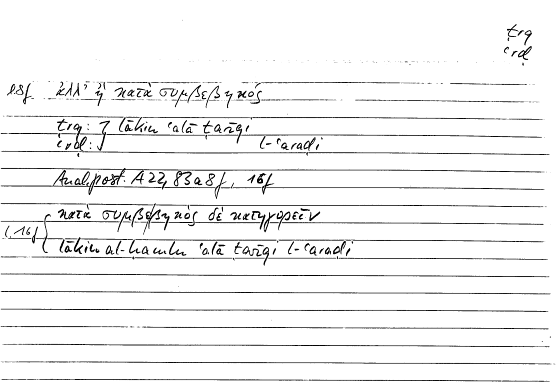 ṭrq
ʿrḍ
l.8f ἀλλ' ἢ κατὰ συμβεβηκός
ṭrq: } lākin ʿalā ṭarīqi
ʿrḍ: } l-ʿaraḍi
Anal. post. A 22, 83a8f, 16f
κατὰ συμβεβηκὸς δὲ κατηγορεῖν
l.16f { lākin al-ḥamlu ʿalā ṭarīqi l-ʿaraḍi